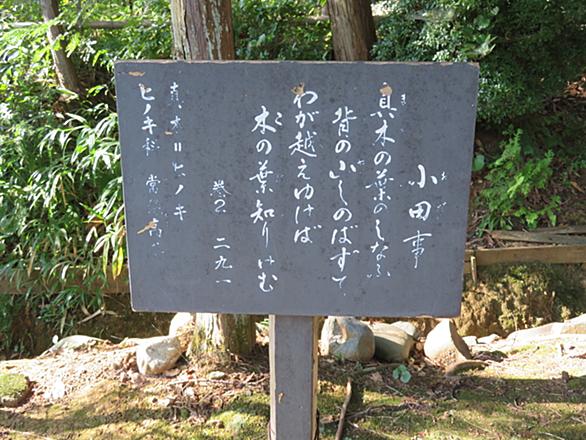 小田事
真木の葉のしなふ
背の山しのばずて
わが越えゆけば
木の葉知りけむ
巻3 二九一
真木＝ヒノキ
ヒノキ科 常緑高